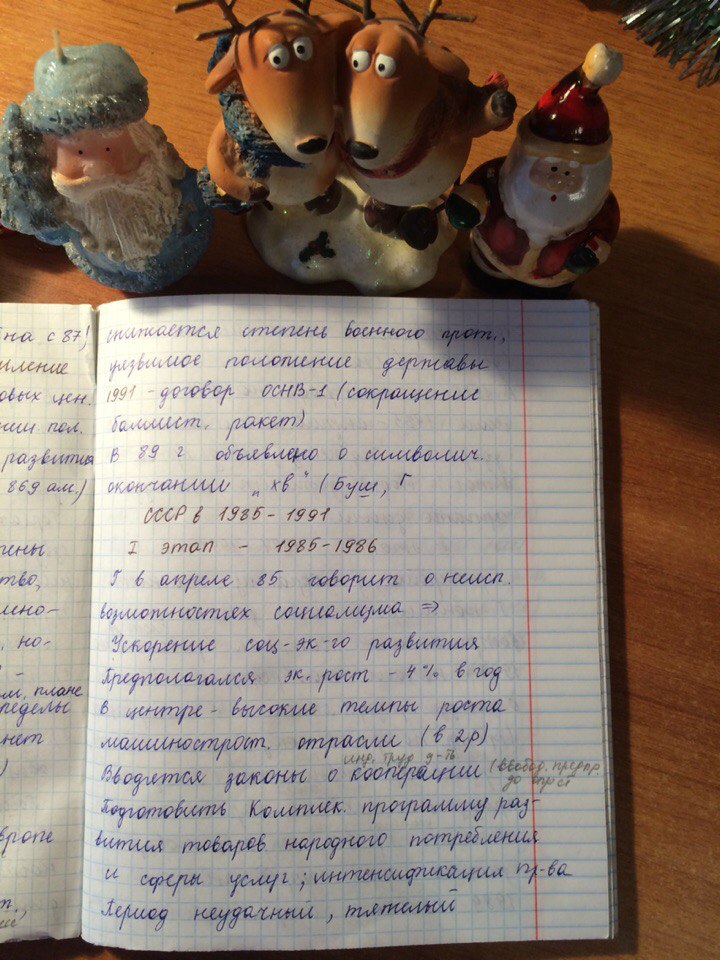 на с 87)
иление
овых цен.
нии пол.
развития
869 ам.)
тво,
но-
м. плане
пределы
нет
вропе
снижается степень военного прот.,
уязвимое положение державы
1991 - договор ОСНВ-1 (сокращение
баллист. ракет)
В 89 г объявлено о символич.
окончании "ХВ" (Буш, Г
СССР в 1985-1991
I этап - 1985-1986
Г в апреле 85 говорит о неисп.
возможностях социализма ⇒
Ускорение соц-эк-го развития
Предполагался эк. рост - 4% в год
В центре - высокие темпы роста
машинострот. отрасли (в 2р)
инд. труд д-ть
Вводятся законы о кооперации (свобод. предпр.
до
Подготовить Комплек. программу раз-
вития товаров народного потребления
и сферы услуг; интенсификация пр-ва
Период неудачный, тяжелый